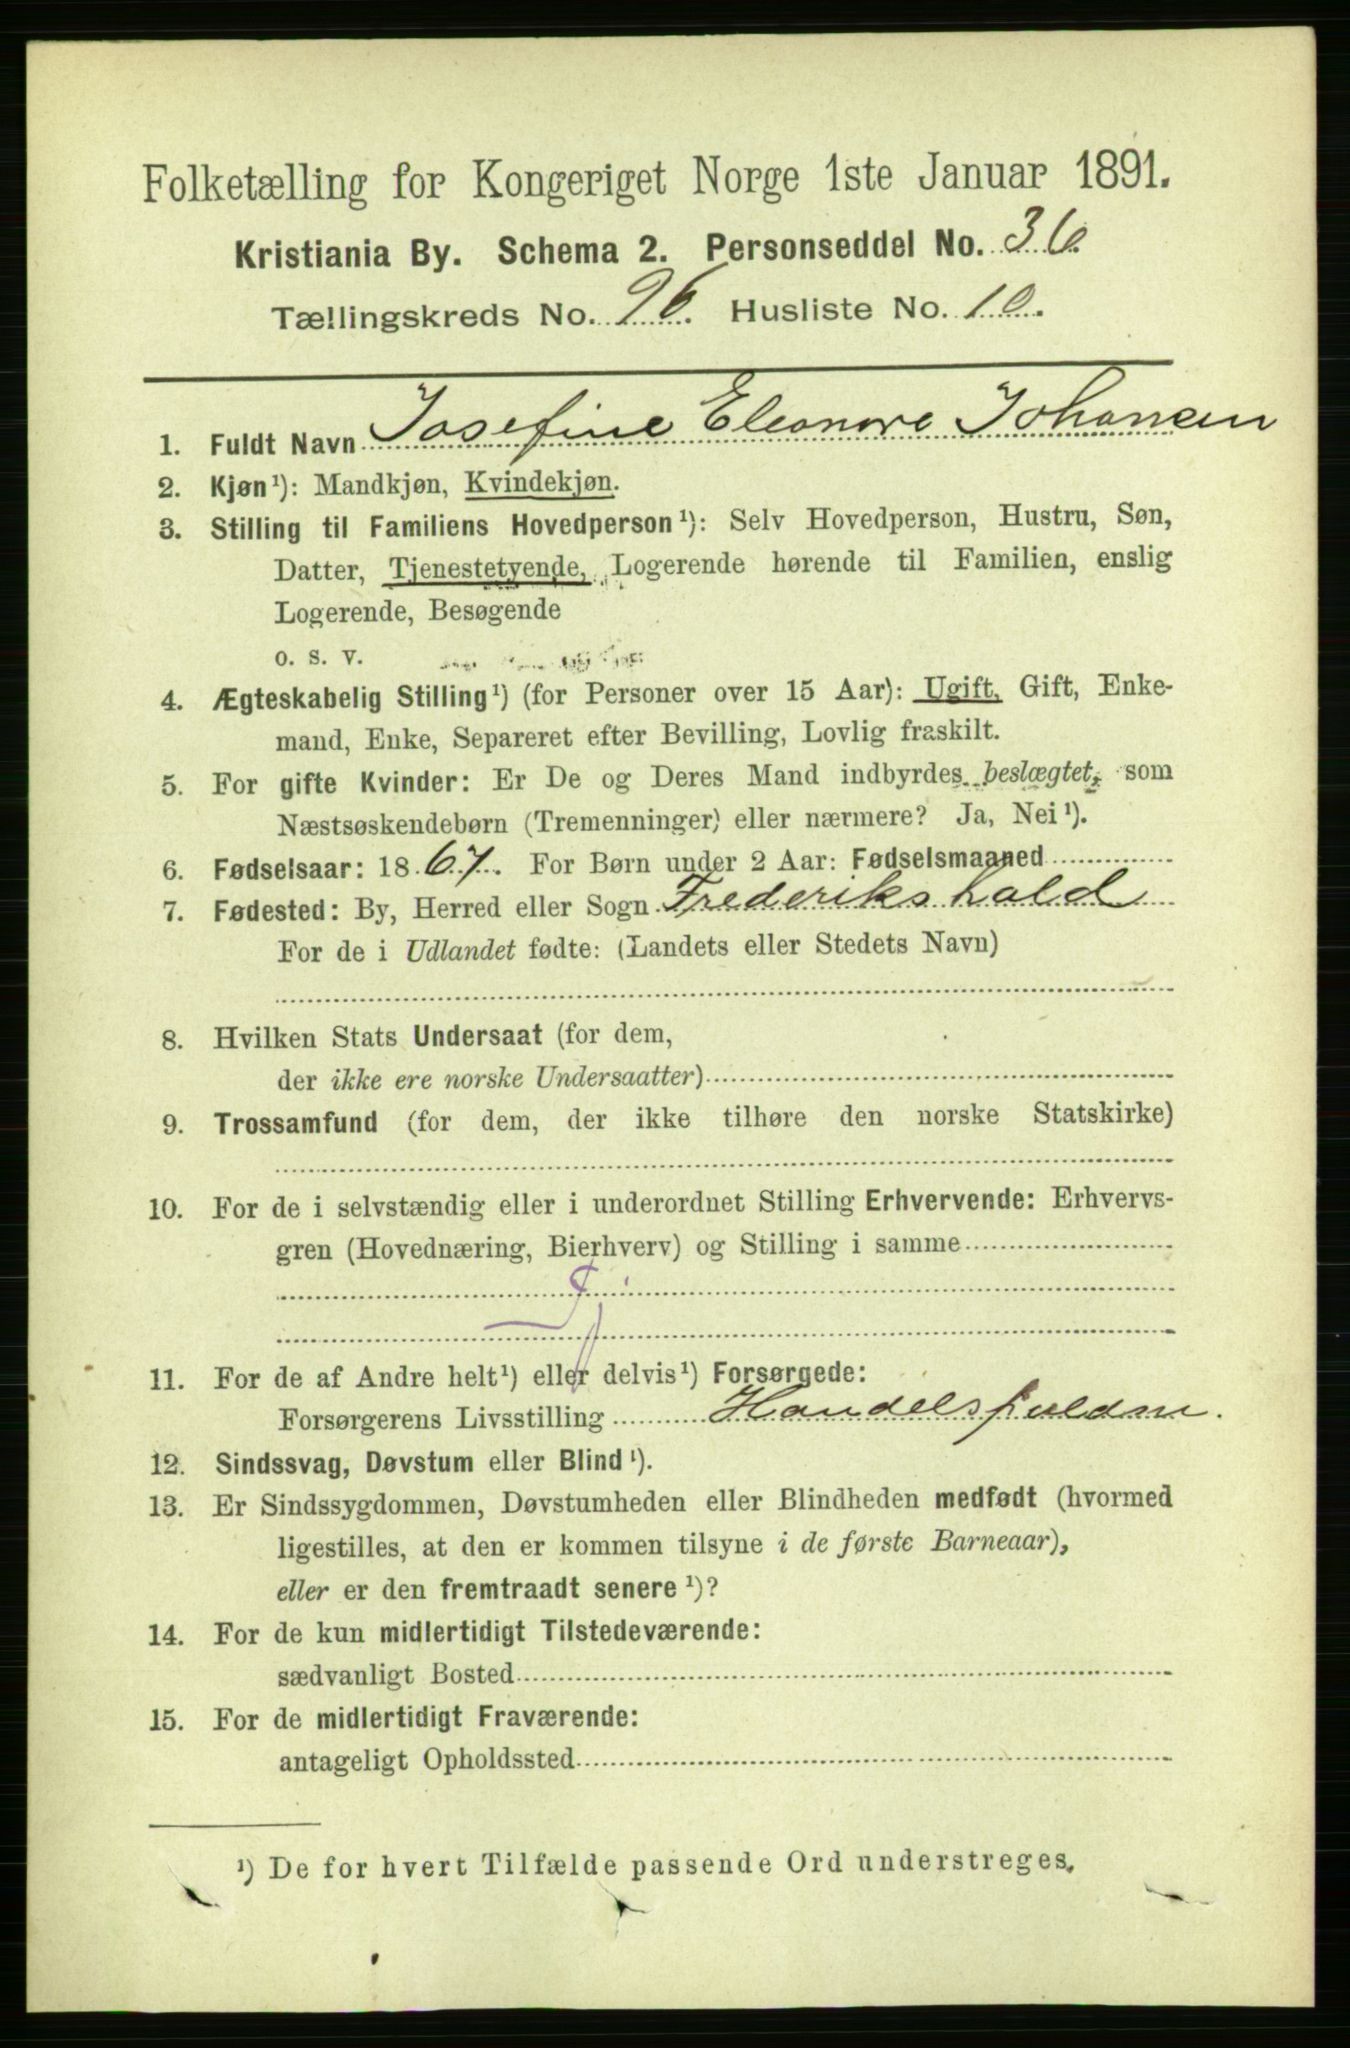 Folketælling for Kongeriget Norge 1ste Januar 1891.
Kristiania By. Schema 2. Personseddel No. 36
Tællingskreds No. 96 Husliste No. 10.
1. Fuldt Navn Josefine Eleonore Johansen
2. Kjøn ¹): Mandkjøn, Kvindekjøn.
3. Stilling til Familiens Hovedperson ¹): Selv Hovedperson, Hustru, Søn,
Datter, Tjenestetyende, Logerende hørende til Familien, enslig
Logerende, Besøgende
o. s. v.
4. Ægteskabelig Stilling ¹) (for Personer over 15 Aar): Ugift, Gift, Enke-
mand, Enke, Separeret efter Bevilling, Lovlig fraskilt.
5. For gifte Kvinder: Er De og Deres Mand indbyrdes beslægtet, som
Næstsøskendebørn (Tremenninger) eller nærmere? Ja, Nei ¹).
6. Fødselsaar: 1867. For Børn under 2 Aar: Fødselsmaaned
7. Fødested: By, Herred eller Sogn Frederikshald
For de i Udlandet fødte: (Landets eller Stedets Navn)
8. Hvilken Stats Undersaat (for dem,
der ikke ere norske Undersaatter)
9. Trossamfund (for dem, der ikke tilhøre den norske Statskirke)
10. For de i selvstændig eller i underordnet Stilling Erhvervende: Erhvervs-
gren (Hovednæring, Bierhverv) og Stilling i samme
11. For de af Andre helt ¹) eller delvis ¹) Forsørgede:
Forsørgerens Livsstilling
12. Sindssvag, Døvstum eller Blind ¹).
13. Er Sindssygdommen, Døvstumheden eller Blindheden medfødt (hvormed
ligestilles, at den er kommen tilsyne i de første Barneaar),
eller er den fremtraadt senere ¹)?
14. For de kun midlertidigt Tilstedeværende:
sædvanligt Bosted
15. For de midlertidigt Fraværende:
antageligt Opholdssted
¹) De for hvert Tilfælde passende Ord understreges.